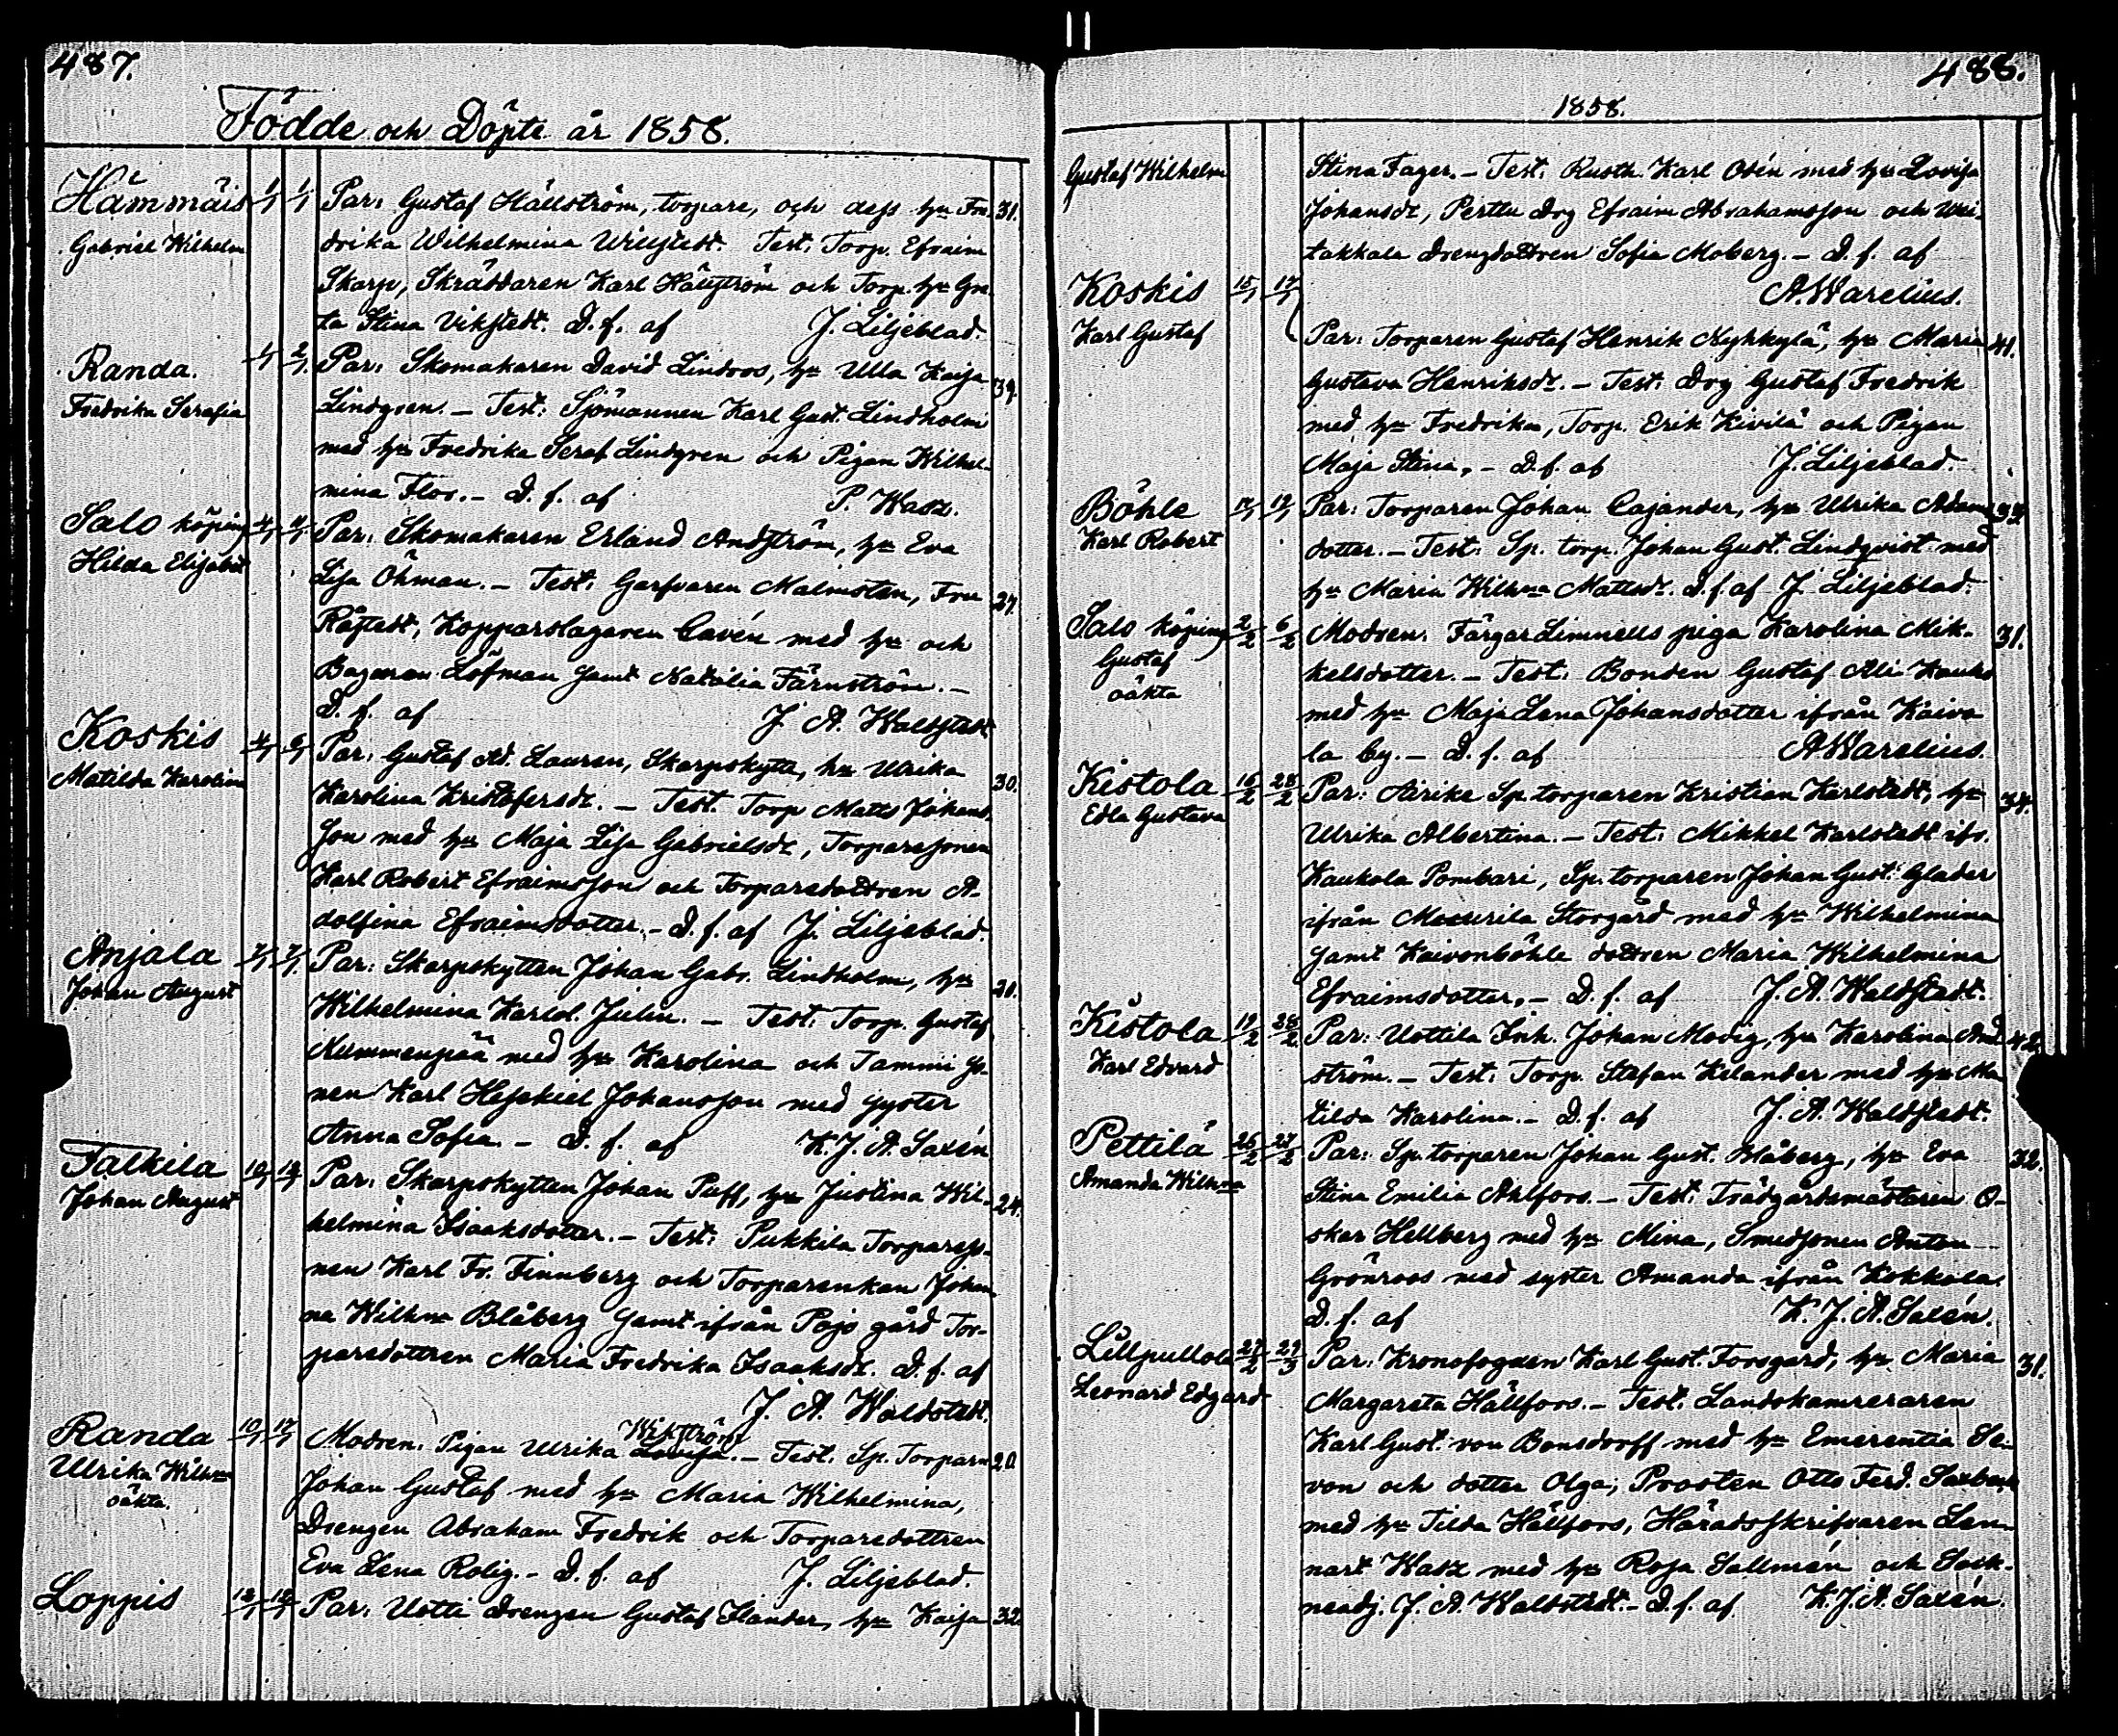 487.
Födde och Döpte år 1858.
Hämmäis 1/1 1/1 Par: Gustaf Hällström, torpare, och dess hu Fre- 31.
Gabriel Wilhelm drika Wilhelmina Willstedt. Test: Torp. Efraim
Skarp, Skräddaren Karl Hällström och Torp. hu Gre-
ta Stina Vikstedt. D. f. af J. Liljeblad.
Randa. 1/1 2/1 Par: Skomakaren David Lindroos, hu Ulla Kaisa 39.
Fredrika Serafia Lindgren. – Test: Sjömannen Karl Gust. Lindholm
med hu Fredrika Seraf Lindgren och Pigan Wilhel-
mina Flor. – D. f. af P. Wasz.
Salo köping 4/1 4/1 Par: Skomakaren Erland Andström, hu Eva
Hilda Elisabet Lisa Öhman. – Test: Garfvaren Malmsten, Fru 27.
Råstedt, Kopparslagaren Cavén med hu och
Bagaren Löfman samt Natalia Färnström. –
D. f. af J. A. Waldstedt
Koskis 4/1 6/1 Par: Gustaf Ad. Lauren, Skarpskytt, hu Ulrika 30.
Matilda Karolina Karolina Kristofersdr. – Test. Torp Matts Johans-
son med hu Maja Lisa Gabrielsdr, Torparesonen
Karl Robert Efraimsson och Torparedottren A-
dolfina Efraimsdotter. – D. f. af J. Liljeblad.
Anjala 7/1 7/1 Par: Skarpskytten Johan Gabr. Lindholm, hu 21.
Johan August Wilhelmina Karol. Julin. – Test: Torp. Gustaf
Nummenpää med hu Karolina och Tammi so-
nen Karl Hesekiel Johansson med syster
Anna Sofia. – D. f. af K. J. A. Saxén
Talkila 10/1 14/1 Par: Skarpskytten Johan Puff, hu Justina Wil- 24.
Johan August helmina Isaaksdotter. – Test: Pukkila Torpareso-
nen Karl Fr. Finnberg och Torparenkan Johan-
na Wilhna Blåberg samt ifrån Pojo gård Tor-
paredottren Maria Fredrika Isaaksdr. D. f. af
J. A. Waldstedt.
Randa 10/1 17/1 Modren: Pigan Ulrika Wikström. – Test: Sp. Torparn 20.
Ulrika Wilhna Johan Gustaf med hu Maria Wilhelmina,
oäkta. Drengen Abraham Fredrik och Torparedottren
Eva Lena Rolig. – D. f. af J. Liljeblad.
Loppis 12/1 12/1 Par: Uotti drengen Gustaf Ilander, hu Kaisa 32.
488.
1858.
Gustaf Wilhelm Stina Fager. – Test: Rusth. Karl Odén med hu Lovisa
Johansdr, Perttu drg Efraim Abrahamsson och
takkala drengdottren Sofia Moberg. – D. f. af
A. Warelius.
Koskis 15/1 17/1
Karl Gustaf Par: Torparen Gustaf Henrik Nyhkylä, hu Maria 41.
Gustava Henriksdr. – Test: Drg Gustaf Fredrik
med hu Fredrika, Torp. Erik Kivilä och Pigan
Maja Stina. – D. f. af J. Liljeblad.
Böhle 17/1 19/1 Par: Torparen Johan Cajander, hu Ulrika Adams-
Karl Robert dotter. – Test: Sp. torp. Johan Gust. Lindqvist med
hu Maria Wilhna Mattsdr. D. f. af J. Liljeblad.
Salo köping 2/2 6/2 Modren: Färgar Limnells piga Karolina Mik- 31.
Gustaf kelsdotter. – Test: Bonden Gustaf Ali Kauko
oäkta med hu Maja Lena Johansdotter ifrån Kaiva
la by. – D. f. af A. Warelius.
Kistola 16/2 28/2 Par: Airike Sp torparen Kristian Karlstedt, hu 34.
Edla Gustava Ulrika Albertina. – Test: Mikkel Karlstedt ifr.
Kaukola Pombari, Sp. torparen Johan Gust. Glader
ifrån Muurila Storgård med hu Wilhelmina
samt Kaivonböhle dottren Maria Wilhelmina
Efraimsdotter. – D. f. af J. A. Waldstedt.
Kistola 19/2 28/2 Par: Uottila Inh. Johan Modig, hu Karolina And- 42.
Karl Edvard ström. – Test: Torp. Stefan Kilander med hu Ma-
tilda Karolina. – D. f. af J. A. Waldstedt.
Pettilä 26/2 27/2 Par: Sp. torparen Johan Gust. Blåberg, hu Eva 32.
Amanda Wilhna Stina Emilia Ahlfors. – Test: Trädgårdsmästaren O-
skar Hellberg med hu Mina, Smedsonen Anton
Grönroos med syster Amanda ifrån Kokkola.
D. f. af K. J. A. Saxén.
Lillpullola 27/2 29/3 Par: Kronofogden Karl Gust. Forsgård, hu Maria 31.
Leonard Edgard Margareta Hällfors. – Test: Landskamreraren
Karl Gust. von Bonsdorff med hu Emerentia Se-
von och dotter Olga; Prosten Otto Ferd. Saxbeck
med hu Tilda Hällfors, Häradsskrifvaren Len-
nart Wasz med hu Rosa Sallmén och Sock-
neadj. J. A. Waldstedt. – D. f. af K. J. A. Saxén.